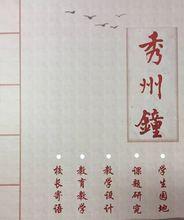 秀州鐘
校长寄语
教育教学
教学设计
课题研究
学生园地